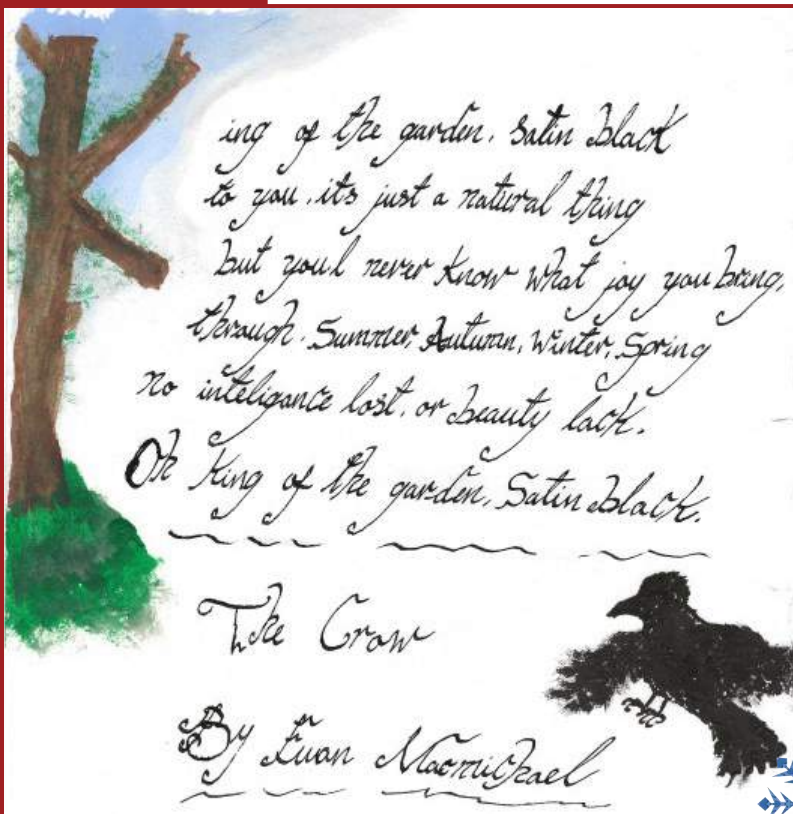 King of the garden, Satin Black
to you, its just a natural thing
but youl never know what joy you bring,
through, Summer, Autumn, Winter, Spring
no inteligance lost, or beauty lack.
Oh King of the garden, Satin Black.
The Crow
By Euan Macmichael